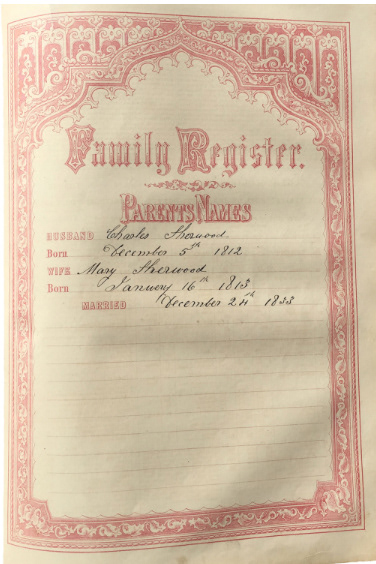 Family Register.
PARENTS NAMES
HUSBAND Charles Sherwood
Born December 5th 1812
WIFE Mary Sherwood
Born January 16th 1813
MARRIED December 24th 1833